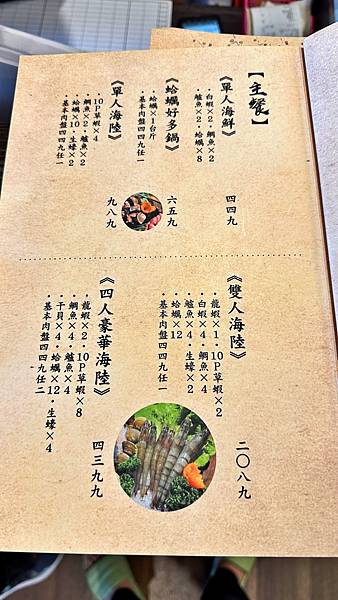 【主餐】
《單人海鮮》
・白蝦×2・鯛魚×2
・鱸魚×2・蛤蠣×8
四四九
《蛤蠣好多鍋》
・蛤蠣×1台斤
・基本肉盤四四九任一
六五九
《單人海陸》
・10P草蝦×4
・鯛魚×2・鱸魚×2
・蛤蠣×10・生蠔×2
・基本肉盤四四九任一
九八九
《雙人海陸》
・龍蝦×1・10P草蝦×2
・白蝦×4・鯛魚×4
・鱸魚×4・生蠔×2
・蛤蠣×12
・基本肉盤四四九任一
二〇八九
《四人豪華海陸》
・龍蝦×2・10P草蝦×8
・鯛魚×4・鱸魚×4
・干貝×4・蛤蠣×12・生蠔×4
・基本肉盤四四九任二
四三九九